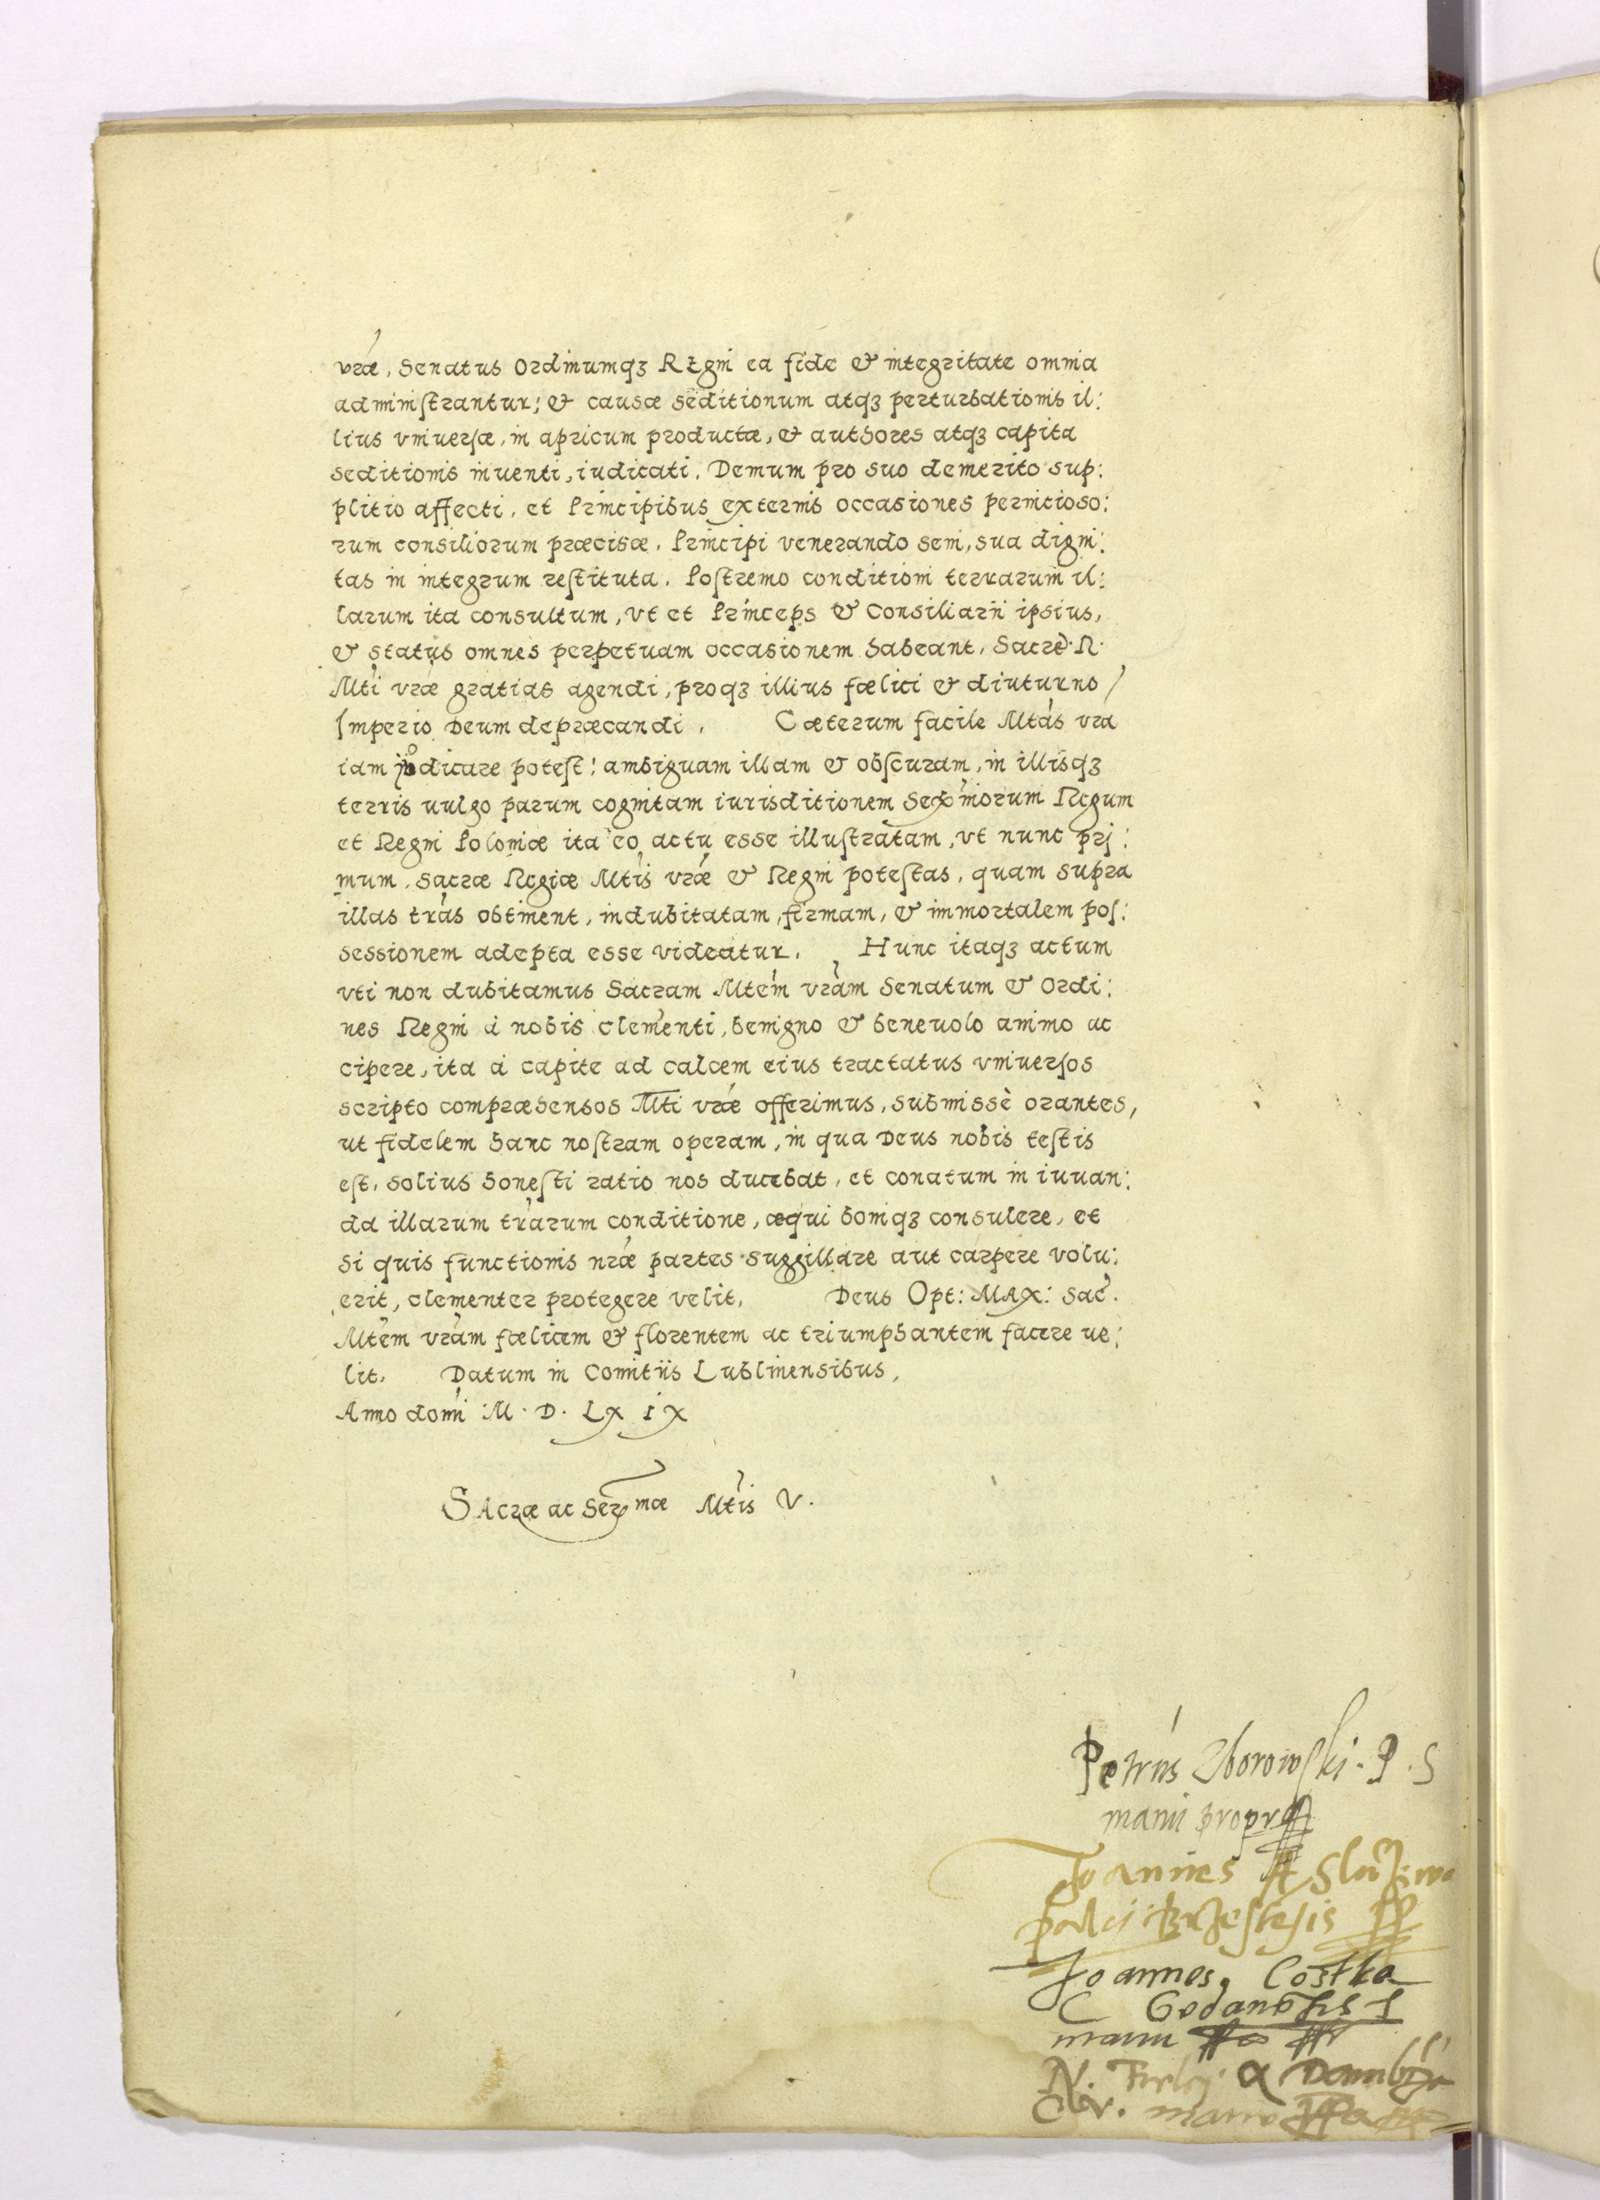 vrae, Senatus Ordinumq3 REgni ea fide & integritate omnia
administrantur; & causae seditionum atq3 perturbationis il:
lius vniuersae, in apricum productae, & authores atq3 capita
seditionis inuenti, iudicati. Demum pro suo demerito sup:
plitio affecti, et Principibus externis occasiones pernicioso:
rum consiliorum praecisae. Principi venerando seni, sua digni:
tas in integrum restituta. Postremo conditioni terrarum il:
larum ita consultum, vt et Princeps & Consiliarii ipsius,
& status omnes perpetuam occasionem habeant, Sacrè R.
Mti vrae gratias agendi, proq3 illius faelici & diuturno
Imperio Deum depraecandi. Caeterum facile Mtas vra
iam iudicare potest: ambiguam illam & obscuram, in illisq3
terris uulgo parum cognitam iurisditionem Sermorum Regum
et Regni Poloniae ita eo actu esse illustratam, vt nunc pri:
mum, Sacrae Regiae Mtis vrae & Regni potestas, quam supra
illas tras obtinent, indubitatam, firmam, & immortalem pos:
sessionem adepta esse videatur. Hunc itaq3 actum
vti non dubitamus Sacram Mtem vram Senatum & Ordi:
nes Regni à nobis clementi, benigno & beneuolo animo ac
cipere, ita à capite ad calcem eius tractatus vniuersos
scripto compraehensos Mti vrae offerimus, submissè orantes,
ut fidelem hanc nostram operam, in qua Deus nobis testis
est, solius honesti ratio nos ducebat, et conatum in iuuan:
da illarum trarum conditione, aequi boniq3 consulere, et
si quis functionis nrae partes suggillare aut carpere volu:
erit, clementer protegere velit. Deus Opt: MAX: Sac.
Mtem vram faelicem & florentem ac triumphantem facere ue:
lit. Datum in Comitiis Lublinensibus,
Anno domi M. D. LX IX
SAcrae ac Sermae Mtis V.
Petrus Zborowski. P. S
manu propra
Joannes A Sluzewo
palai Brzestesis pp
Joannes Costka
C Gedanesis s
manu
N. Firlej a Dambro
manu